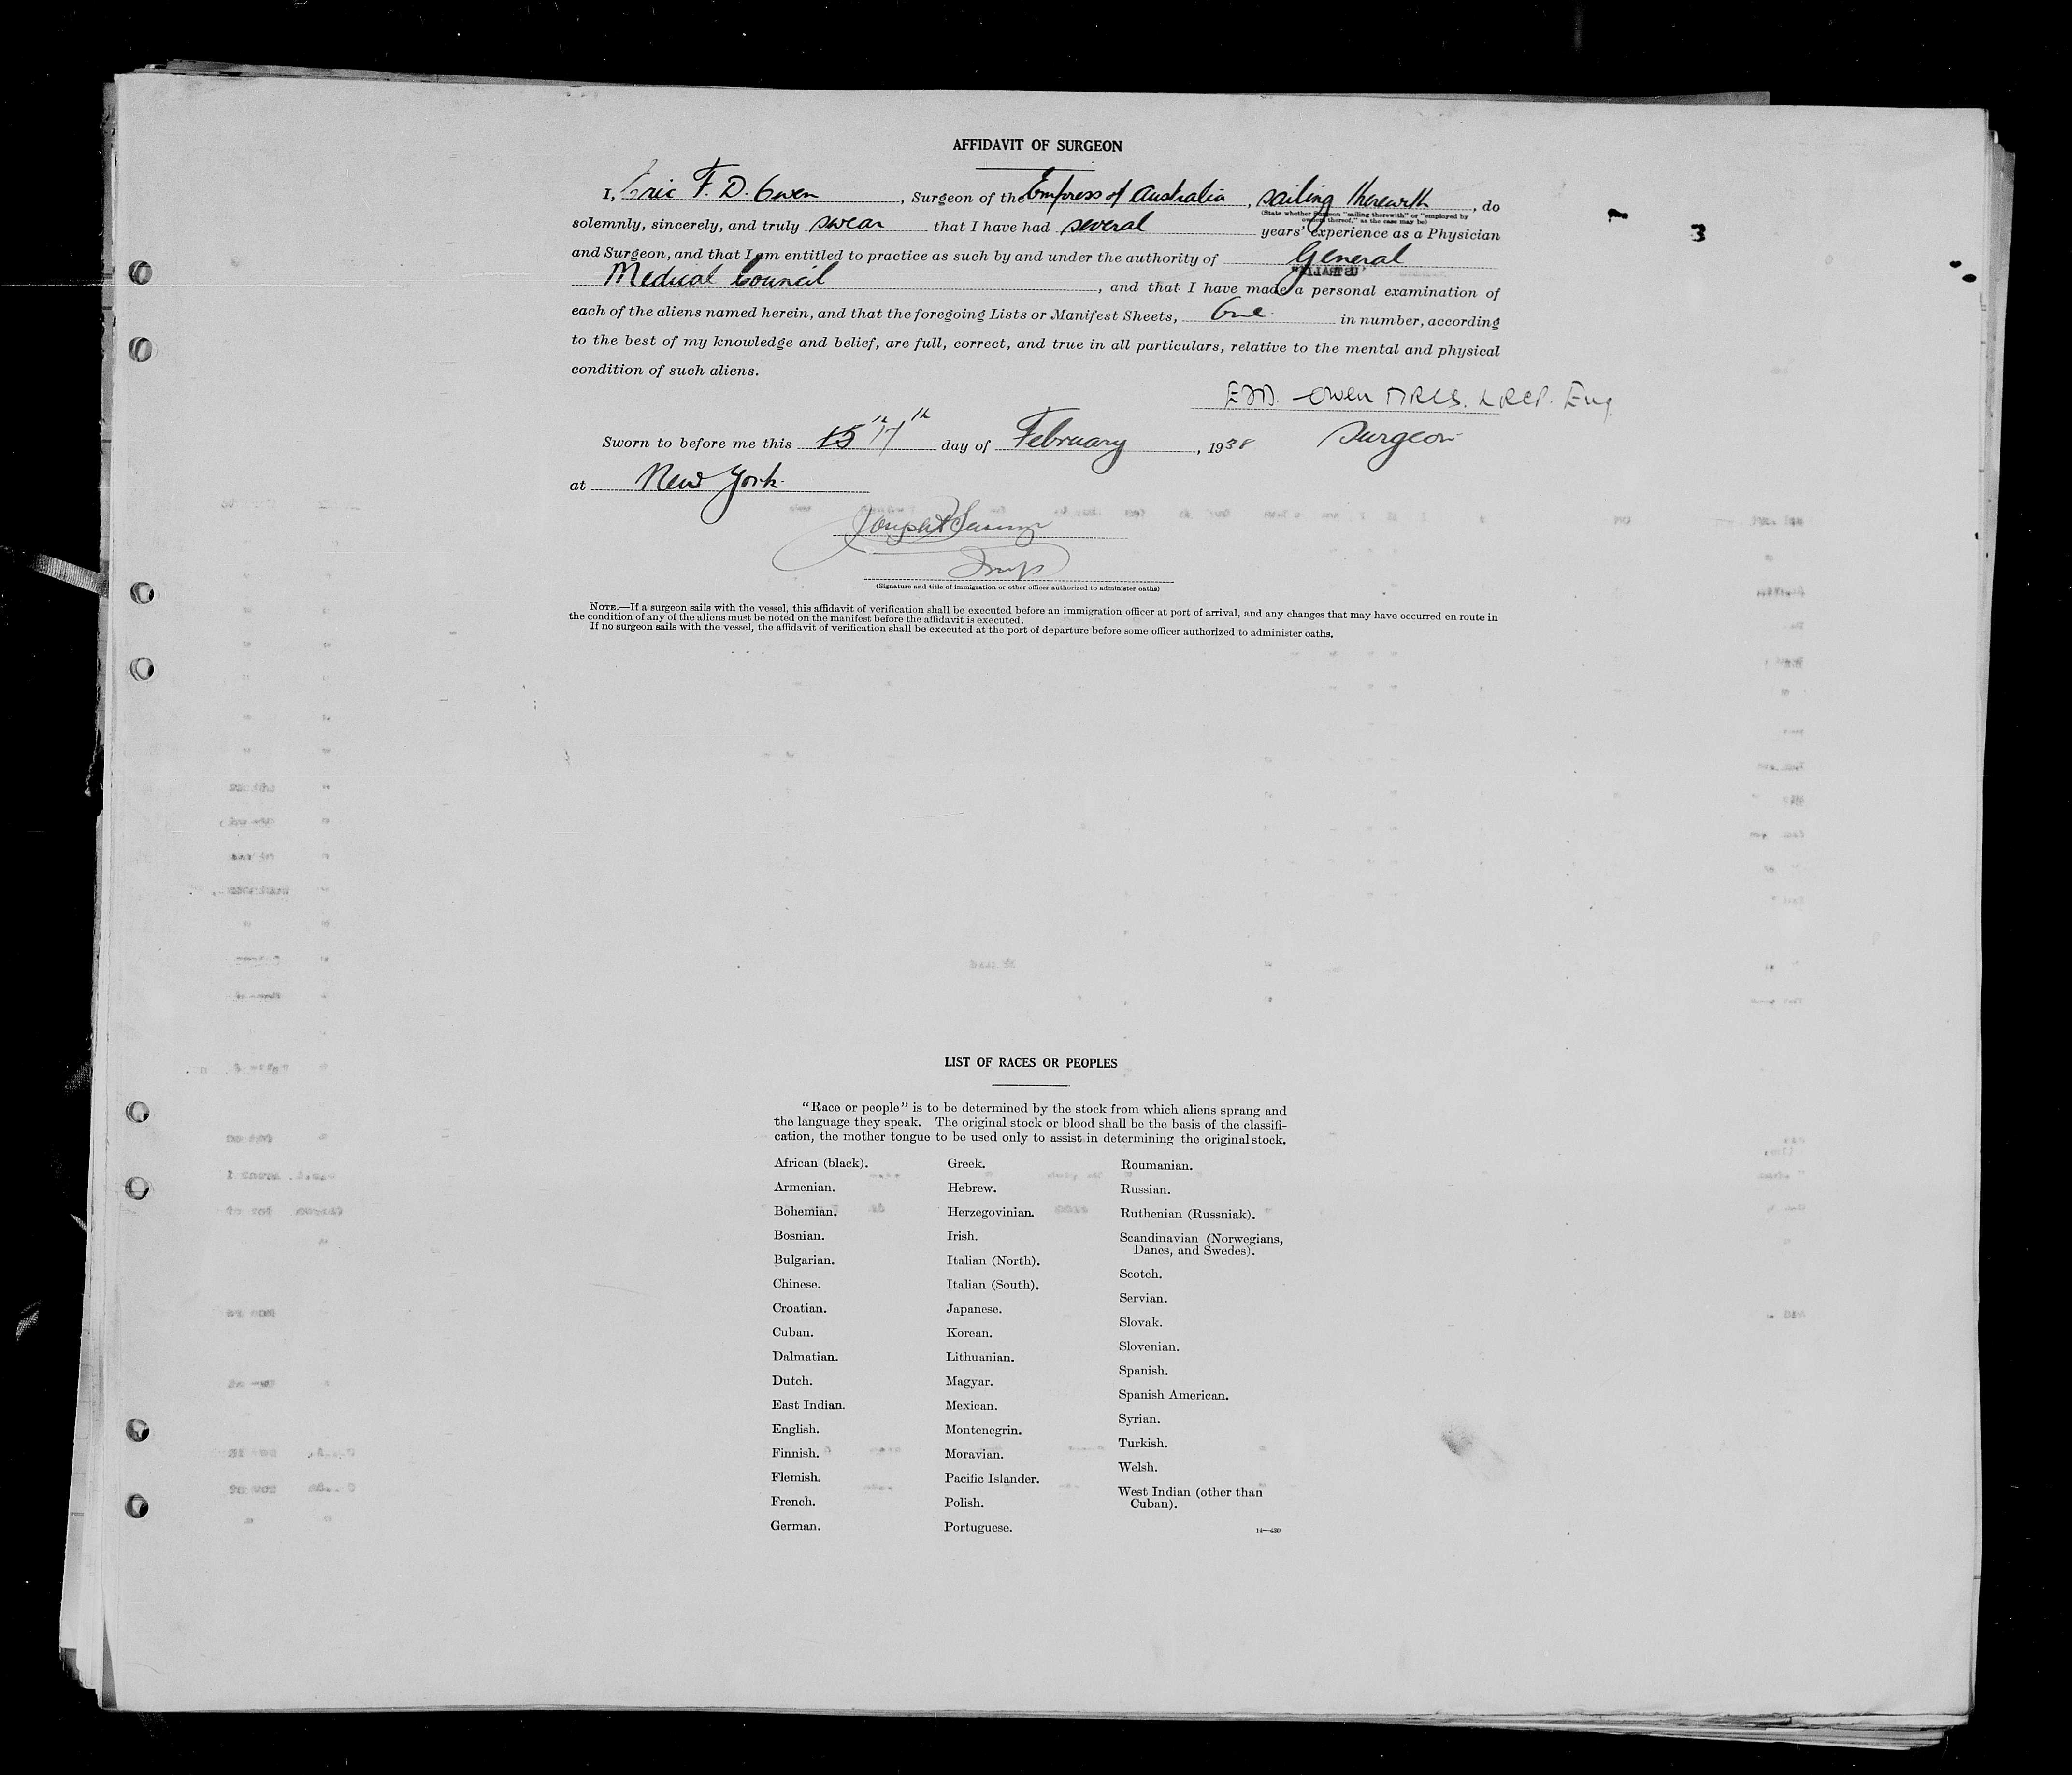 AFFIDAVIT OF SURGEON
I, Eric F. D. Owen, Surgeon of the Empress of Australia, sailing therewith, do
(State whether Surgeon "sailing therewith" or "employed by
owners thereof," as the case may be)
3
solemnly, sincerely, and truly swear that I have had several years' experience as a Physician
and Surgeon, and that I am entitled to practice as such by and under the authority of General
Medical Council, and that I have made a personal examination of
each of the aliens named herein, and that the foregoing Lists or Manifest Sheets, One in number, according
to the best of my knowledge and belief, are full, correct, and true in all particulars, relative to the mental and physical
condition of such aliens.
Owen MRCS. LRCP. Eng
Sworn to before me this 15th 17th day of February, 1938 Surgeon
at New York.
(Signature and title of immigration or other officer authorized to administer oaths)
NOTE.—If a surgeon sails with the vessel, this affidavit of verification shall be executed before an immigration officer at port of arrival, and any changes that may have occurred en route in
the condition of any of the aliens must be noted on the manifest before the affidavit is executed.
If no surgeon sails with the vessel, the affidavit of verification shall be executed at the port of departure before some officer authorized to administer oaths.
LIST OF RACES OR PEOPLES
"Race or people" is to be determined by the stock from which aliens sprang and
the language they speak. The original stock or blood shall be the basis of the classifi-
cation, the mother tongue to be used only to assist in determining the original stock.
African (black).
Armenian.
Bohemian.
Bosnian.
Bulgarian.
Chinese.
Croatian.
Cuban.
Dalmatian.
Dutch.
East Indian.
English.
Finnish.
Flemish.
French.
German.
Greek.
Hebrew.
Herzegovinian.
Irish.
Italian (North).
Italian (South).
Japanese.
Korean.
Lithuanian.
Magyar.
Mexican.
Montenegrin.
Moravian.
Pacific Islander.
Polish.
Portuguese.
Roumanian.
Russian.
Ruthenian (Russniak).
Scandinavian (Norwegians,
Danes, and Swedes).
Scotch.
Servian.
Slovak.
Slovenian.
Spanish.
Spanish American.
Syrian.
Turkish.
Welsh.
West Indian (other than
Cuban).